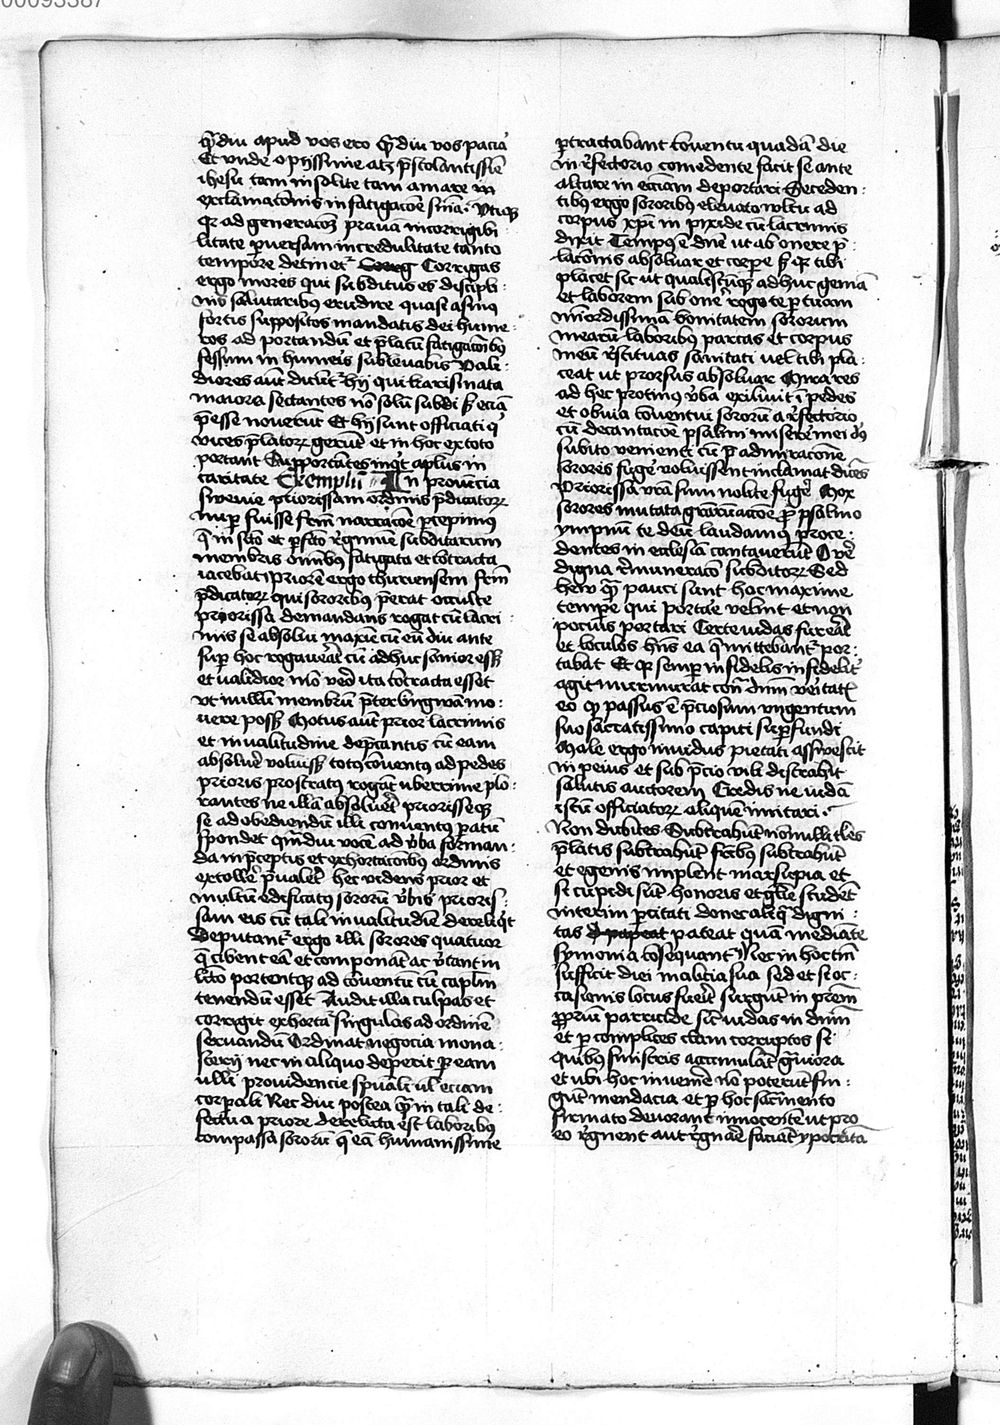 00093387
q̄diu apud vos ero q̄diu vos paciar
Et vnde o pijssime atqꝫ p̄stolantissīe
ihesu tam insolite tam amare in
exclamac̄onis infatigac̄oe
qꝛ ad generac̄oꝫ prauā incorrigibi-
litate puersam incredulitate tanto
tempore detinet᷑ Corrigas
ergo mores qui subditus es discipli-
nis salutaribus erudire quasi asinus
fortis suppositos mandatis dei hume-
ros ad portandū et p̄latū fatigac̄oībus
fessum in humeris subleuabis Vali-
diores aūt dicūt᷑ hij qui karismata
maiora sectantes nō solū subdi sꝫ eciā
p̄esse nouerūt Et hij sunt officiati qͥ
vices p̄latoꝝ gerūt et in hoc ex toto
portant Supportātes inqͥt aplus in
caritate Exemplū In prouīcia
sweuie priorissam ordinis p̄dicatoꝝ
nuper fuisse fratrū narrac̄oe p̄cepimus
q̄ in scō et p̄fc̄o regimīe subditarum
membris om̄ibus fatigata et cōtracta
iacebat priorē ergo thuricensem fratrū
p̄dicatoꝝ qui sororibus p̄erat occulte
priorissa demandans rogat cū lacri-
mis se absolui maxīe cū eū diu ante
sup hoc rogauerat cū adhuc sanior esset
et validior mō vero ita cōtracta esset
vt nullū membrū p̄ter lingwā mo-
uere posset Motus aūt prior lacrimis
et inualitudine dep̄cantis cū eam
absoluere voluisset totus cōuentus ad pedes
prioris prostratus rogāt vberrime plo-
rantes ne illā absolueret priorisseqꝫ
se ad obediendū illi conuentus paratū
spondet qm̄diu vocē ad v̄ba forman-
da in p̄ceptis et exhortac̄oībus ordinis
extollere p̄ualeret hec videns prior et
multū edificatus sororū v̄bis prioris-
sam eis cū tali inualitudīe dereliqͥt
Deputant᷑ ergo illi sorores quatuor
q̄ cibent eā et componāt ac vertant in
lc̄o portentqꝫ ad cōuentū cū caplm̄
tenendū esset Audit illa culpas et
corrigit exhortat᷑ singulas ad ordinē
seruandū Ordinat negocia mona-
sterij nec in aliquo deperit p eam
vlli prouidencie spūali vl eciam
corpali Nec diu postea q̄ in tali de-
fectu a priore derelicta est laboribus
compassa sororū q̄ eā humanissime
ptractabant Cōuentu quadā die
in refectorio comedente facit se ante
altare in ecc̄iam deportari Seceden-
tibus ergo sororibus eleuato wltu ad
corpus xp̄i in pixide cū lacrimis
dixit Tempus ē dn̄e vt ab onere p̄-
lac̄onis absoluar et corpe sꝫ qꝛ tibi
placet sic vt qualiscūqꝫ adhuc gemā
et laborem sub one rogo te p tuam
mīcordissimā bonitatem sororum
mearū laboribus parcas et corpus
meū restituas sanitati vel tibi pla-
ceat vt prorsus absoluar Mira res
ad hec protinus v̄ba exiliuit ī pedes
et obuia cōuentui sororū a refectorio
cū decantac̄oe psalmi miserere mei ds
subito venienti cū p̄ admirac̄one
sorores fugere voluissent inclamat dicēs
Priorissa vrā sum nolite fugere Mox
sorores mutata gr̄arū acc̄oe ꝓ psalmo
ympnū te deū laudamus proce-
dentes in ecclesiā cantauerūt O vere
digna remunerac̄o subditoꝝ Sed
hew q̄ pauci sunt hoc maxime
tempore qui portare velint et non
pocius portari Certe iudas fur erat
et loculos hn̄s ea q̄ mittebant᷑ por-
tabat Et qꝛ semper infidelis infidelit᷑
agit murmurat contra dn̄m
eo qꝫ passus ē p̄ciosum vngentum
suo sacratissimo capiti supfundi
Male ergo inuidus pietati asswescit
in peius et sub p̄cio vili distrahit
salutis auctorem Credis ne iudā
istū officiatoꝝ aliquē imitari
Non dubites Subtrahūt nōnulli tales
p̄latis subtrahūt fratribus subtrahūt
et egenis implent marsupia et
si cupidi sūt honoris et glīe studēt
interim p̄citati donec aliq̄ digni-
tas pateat quā mediāte
symonia cōsequant᷑ Nec in hoc tn̄
sufficit diei malicia sua sed et si oc-
casionis locus fuerit surgūt in prēm
ꝓprium parricide sicut iudas in dn̄m
et p complices etiam corruptos si
quibus sinistris accumulāt grauiora
et vbi hoc inuenire nō poterūt fin-
gūt mendacia et p hoc sacrāmento
firmato deuorant innocentē vt pro
eo regnent aut regnare faciāt ypocritā